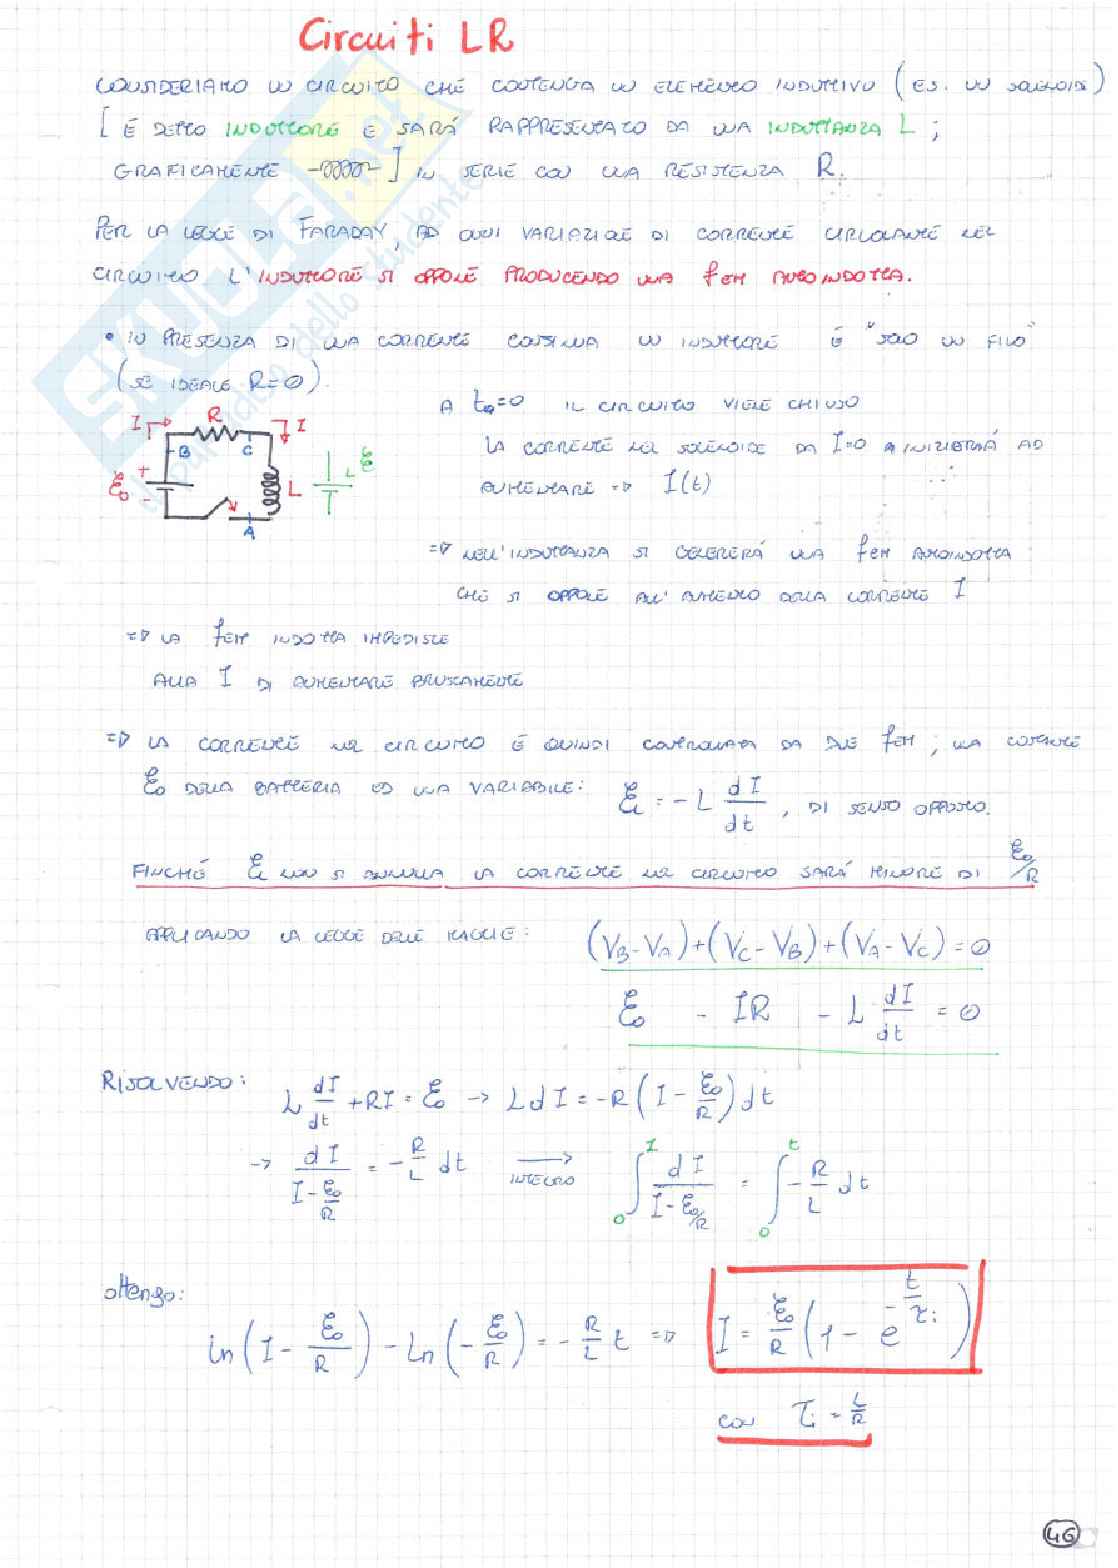 Circuiti LR
CONSIDERIAMO UN CIRCUITO CHE CONTENGA UN ELEMENTO INDUTTIVO (ES. UN SOLENOIDE)
[ È DETTO INDUTTORE E SARÁ RAPPRESENTATO DA UNA INDUTTANZA L ;
GRAFICAMENTE ] IN SERIE CON UNA RESISTENZA R.
PER LA LEGGE DI FARADAY, AD OGNI VARIAZIONE DI CORRENTE CIRCOLANTE NEL
CIRCUITO L'INDUTTORE SI OPPONE PRODUCENDO UNA fem AUTOINDOTTA.
• IN PRESENZA DI UNA CORRENTE CONTINUA UN INDUTTORE É "SOLO UN FILO"
(SE IDEALE R=0).
A t₀=0 IL CIRCUITO VIENE CHIUSO
LA CORRENTE NEL SOLENOIDE DA I=0 INIZIERÁ AD
AUMENTARE => I(t)
I R I
B C
+ ℰ₀ - L L ℰ
A
=> NELL'INDUTTANZA SI GENERERÁ UNA fem AUTOINDOTTA
CHE SI OPPONE ALL'AUMENTO DELLA CORRENTE I
=> LA fem INDOTTA IMPEDISCE
ALLA I DI AUMENTARE BRUSCAMENTE
=> LA CORRENTE NEL CIRCUITO É QUINDI CONTROLLATA DA DUE fem ; UNA COSTANTE
ℰ₀ DELLA BATTERIA ED UNA VARIABILE: ℰL = -L dI/dt , DI SENSO OPPOSTO.
FINCHÉ ℰL NON SI ANNULLA LA CORRENTE NEL CIRCUITO SARÁ MINORE DI ℰ₀/R
APPLICANDO LA LEGGE DELLE MAGLIE: (VB-VA)+(VC-VB)+(VA-VC)=0
ℰ₀ - IR - L dI/dt = 0
RISOLVENDO: L dI/dt +RI = ℰ₀ -> LdI = -R(I - ℰ₀/R)dt
-> dI/(I-ℰ₀/R) = -R/L dt —> INTEGRO ∫₀ᴵ dI/(I-ℰ₀/R) = ∫₀ᵗ -R/L dt
ottengo:
ln(I - ℰ₀/R) - ln(-ℰ₀/R) = -R/L t => I = ℰ₀/R (1 - e^(-t/τi))
CON τi = L/R
46
SKUOLA.net
il paradiso dello studente